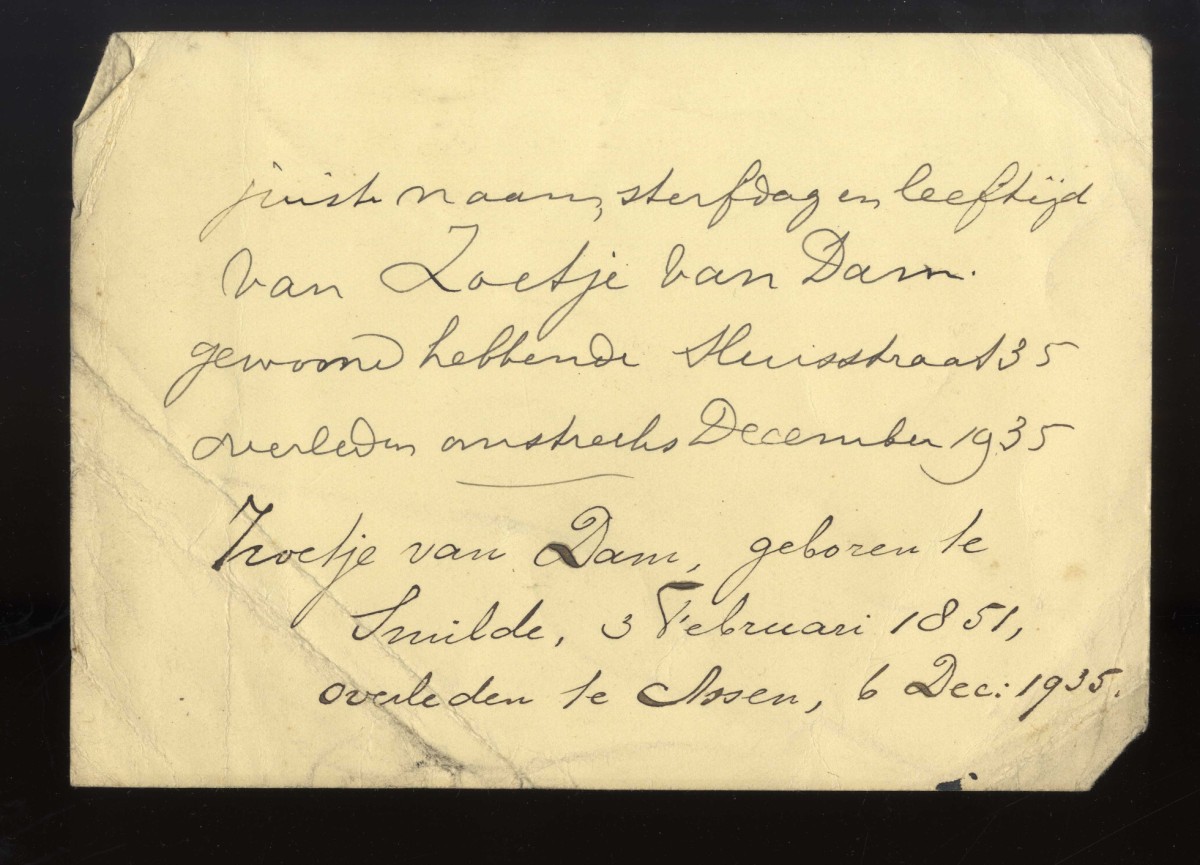 juiste naam, sterfdag en leeftijd
van Zoetje van Dam.
gewoond hebbende Sluisstraat 35
overleden omstreeks December 1935
Zoetje van Dam, geboren te
Smilde, 3 Februari 1851,
overleden te Assen, 6 Dec: 1935.